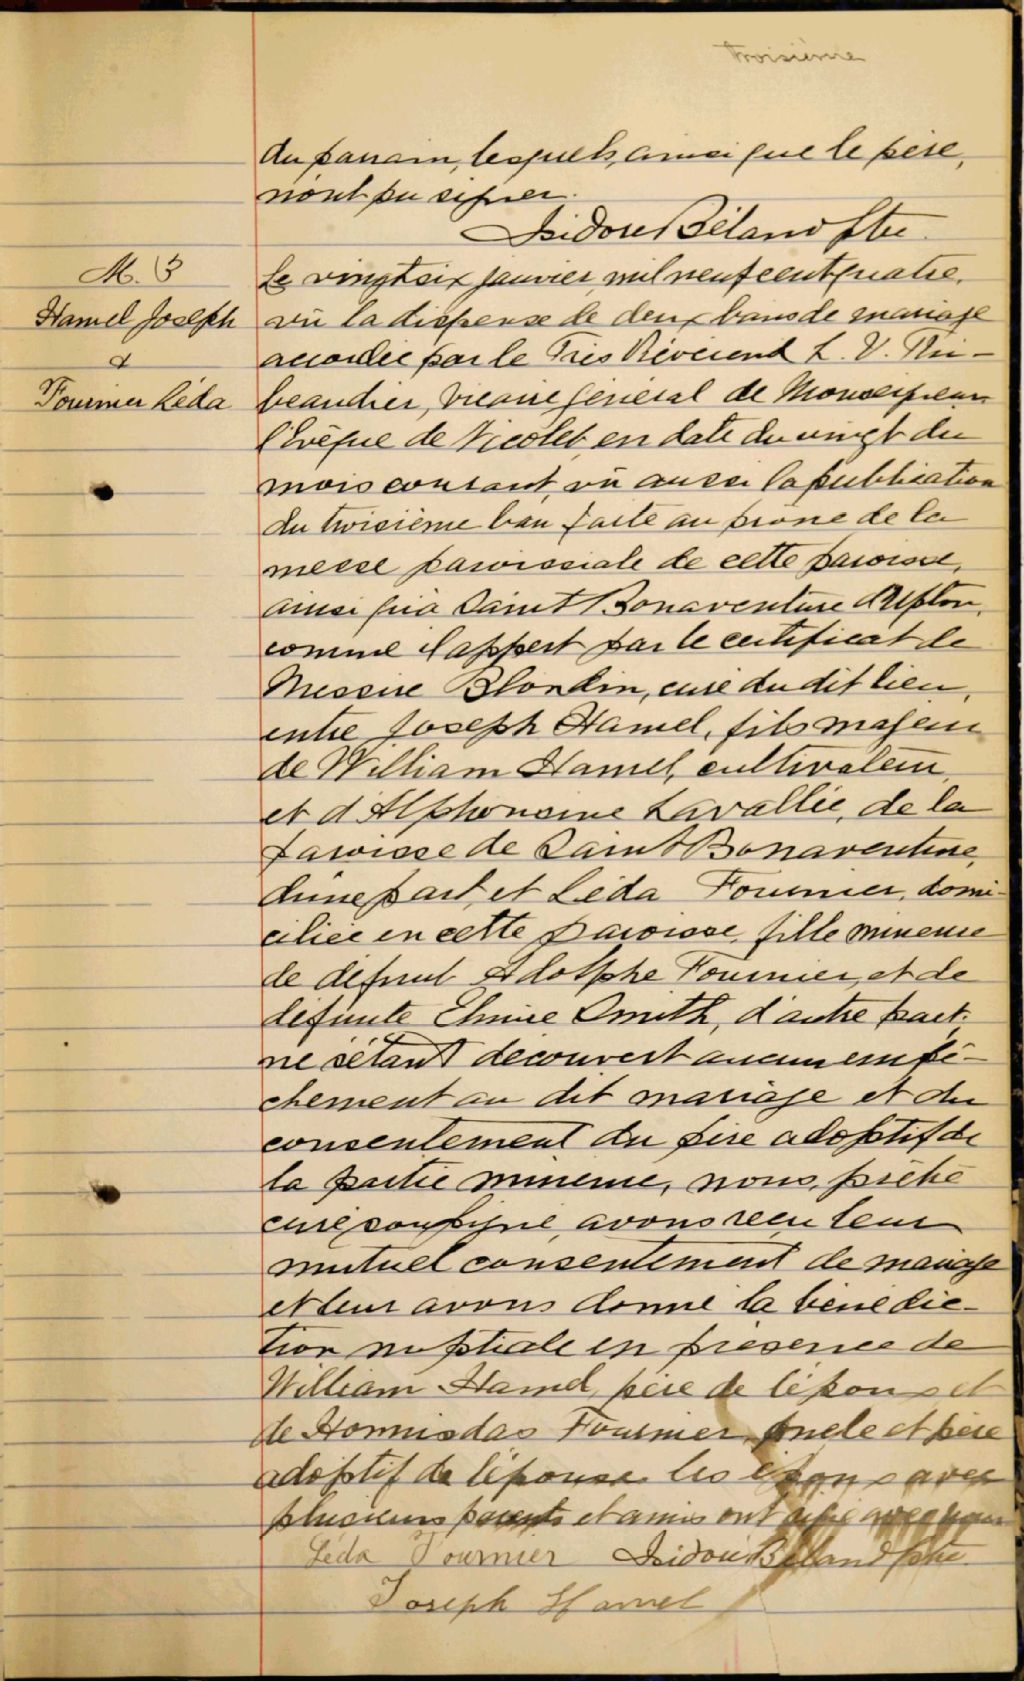 troisième
du parrain, lesquels, ainsi que le père,
n'ont pu signer.
Isidore Béland Ptre
M. 3
Hamel Joseph
&
Fournier Léda
Le vingt six janvier mil neuf cent quatre,
vu la dispense de deux bans de mariage
accordée par le Très Révérend L. V. Thi-
beaudier, vicaire général de Monseigneur
l'Evêque de Nicolet, en date du vingt du
mois courant, vu aussi la publication
du troisième ban faite au prône de la
messe paroissiale de cette paroisse,
ainsi qu'à Saint Bonaventure d'Upton,
comme il appert par le certificat de
Messire Blondin, curé du dit lieu,
entre Joseph Hamel, fils majeur
de William Hamel, cultivateur,
et d'Alphonsine Lavallée, de la
paroisse de Saint Bonaventure,
d'une part, et Léda Fournier, domi-
ciliée en cette paroisse, fille mineure
de défunt Adolphe Fournier, et de
défunte Elmire Smith, d'autre part,
ne s'étant découvert aucun empê-
chement au dit mariage et du
consentement du père adoptif de
la partie mineure, nous, prêtre
curé soussigné, avons reçu leur
mutuel consentement de mariage
et leur avons donné la bénédic-
tion nuptiale en présence de
William Hamel, père de l'époux et
de Hormisdas Fournier, oncle et père
adoptif de l'épouse les époux avec
plusieurs parents et amis ont signé avec nous
Leda Fournier Isidore Béland Ptre.
Joseph Hamel